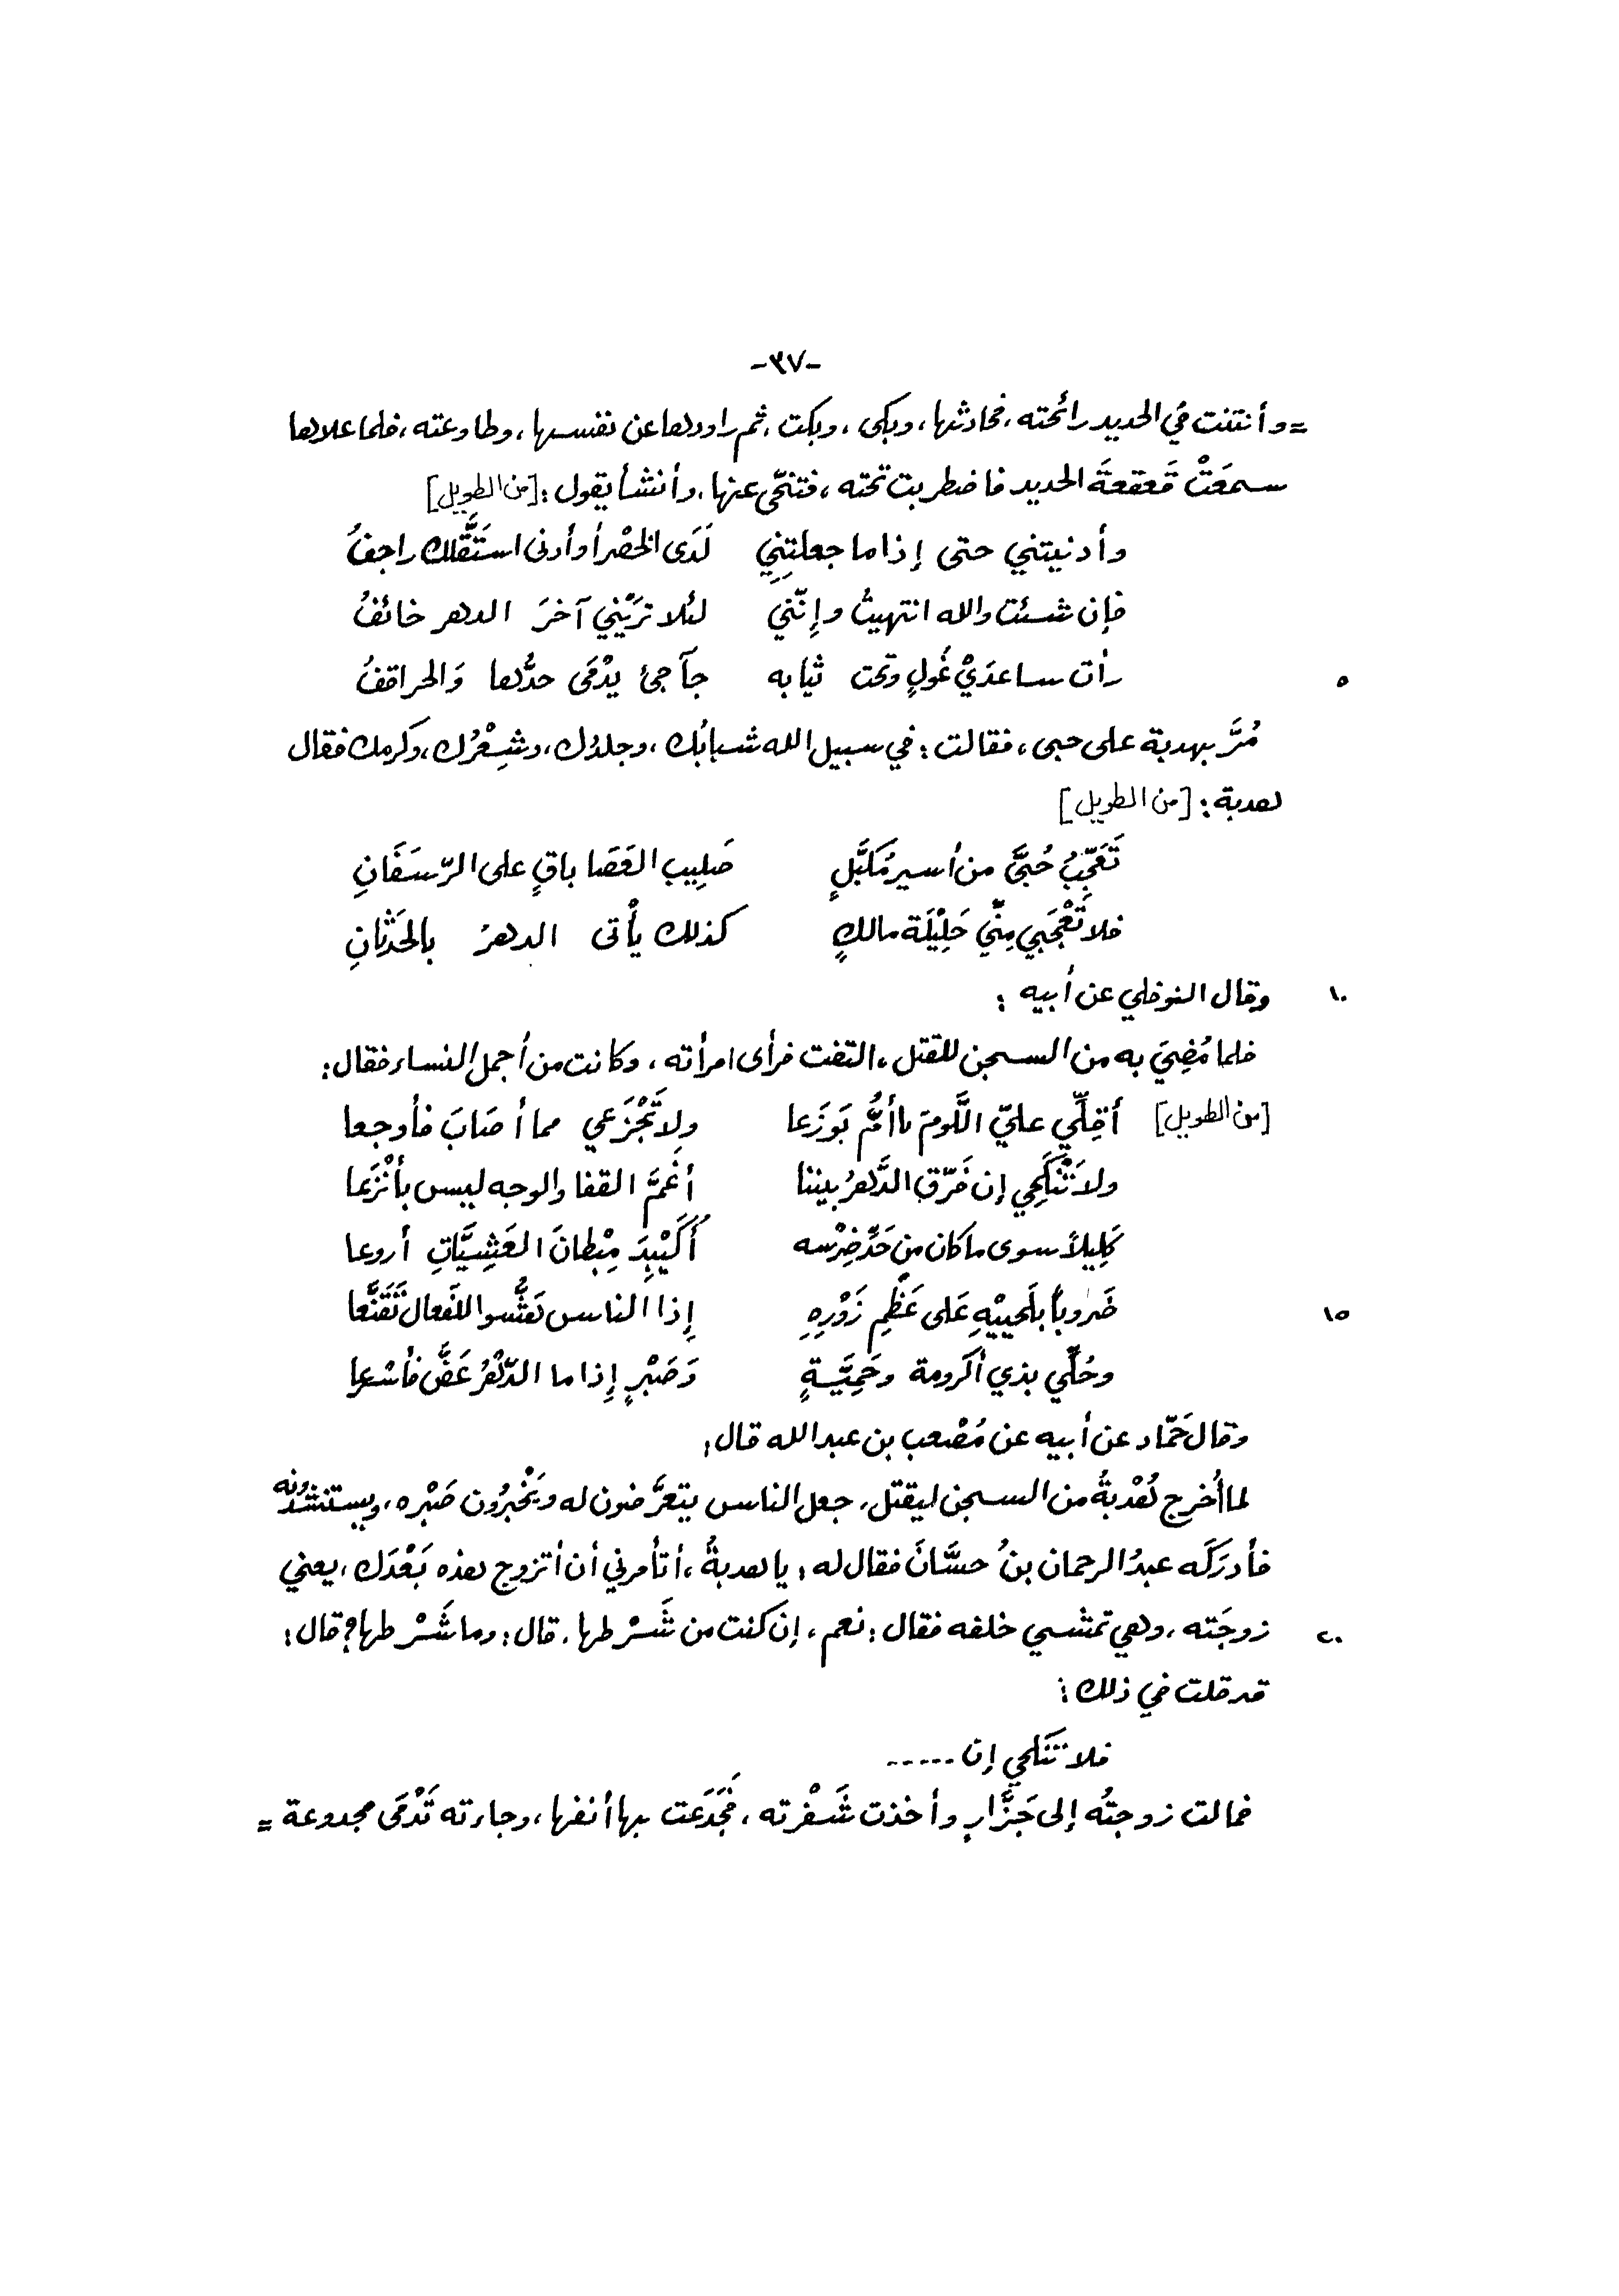 -٣٧-
= وأنتنت في الحديد رائحته، فحادثها، وبكى، وبكت، ثم راودها عن نفسها، وطاوعته، فلما علاها
سمعَتْ قَعقعةَ الحديد فاضطربت تحته، فتنحّى عنها، وأنشأ يقول: [من الطويل]
وأدنيتني حتى إذا ما جعلتِنِي لَدَى الخصْر أو أدنى استَقَّلك راجفُ
فإن شئت والله انتهيتُ وإنّني لئلا ترَيْني آخرَ الدهر خائفُ
رأت ساعدَيْ غُولٍ وتحت ثيابه جآجئ يدْمَى حدُّها وَالحراقفُ ٥
مُرَّ بهدبة على حبى، فقالت: في سبيل الله شبابُك، وجلدُك، وشِعْرُك، وكرمك فقال
هدبة: [من الطويل]
تَعَجَّبُ حُبَّى من أسير مُكَبَّلٍ صَلِيب العَصَا باقٍ على الرّسَفَانِ
فلا تَعْجَبي مِنِّي حَلِيْلَة مالكٍ كذلك يأتى الدهرُ بالحَدَثانِ
وقال النوفلي عن أبيه: ١٠
فلما مُضِيَ به من السجن للقتل، التفت فرأى امرأته، وكانت من أجمل النساء فقال:
[من الطويل] أقِلِّي عليّ اللَّومَ يا أمَّ بَوزَعا ولا تَجْزَعي مما أصَابَ فأوجعا
ولا تَنْكَحِي إن فَرّق الدَّهرُ بيننا أغَمَّ القفا والوجه ليس بأنْزَعا
كَلِيلاً سوى ما كان من حَدِّ ضِرْسه أُكَيْبِدَ مِبْطانَ العَشِيَّاتِ أروعا
ضَروباً بلَحييْهِ عَلى عَظْمِ زَوْرِهِ إذا الناس هَشُّوا للفَعال تَقَنَّعا ١٥
وحُلِّي بذي أكرومة وحَمِيَّةٍ وَصَبْرٍ إذا ما الدّهْرُ عَضَّ فأسْرعا
وقال حَمّاد عن أبيه عن مُصْعب بن عبد الله قال:
لما أُخرج هُدْبةُ من السجن ليقتل، جعل الناس يتعرَّضون له ويَخْبِرُون صَبْره، ويستنشدونه
فأدرَكَه عبدُ الرحمان بنُ حسَّانَ فقال له: يا هدبةُ، أتأمرني أن أتزوج هذه بَعْدَك، يعني
زوجَته، وهي تمشي خلفه فقال: نعم، إن كنت من شَرْطها. قال: وما شَرْطها؟ قال: ٢٠
قد قلت في ذلك:
فلا تَنكحي إن -----
فمالت زوجتُه إلى جَزَّارٍ وأخذت شَفْرته، فَجَدَعَت بها أنفها، وجاءته تَدْمَى مجدوعة =